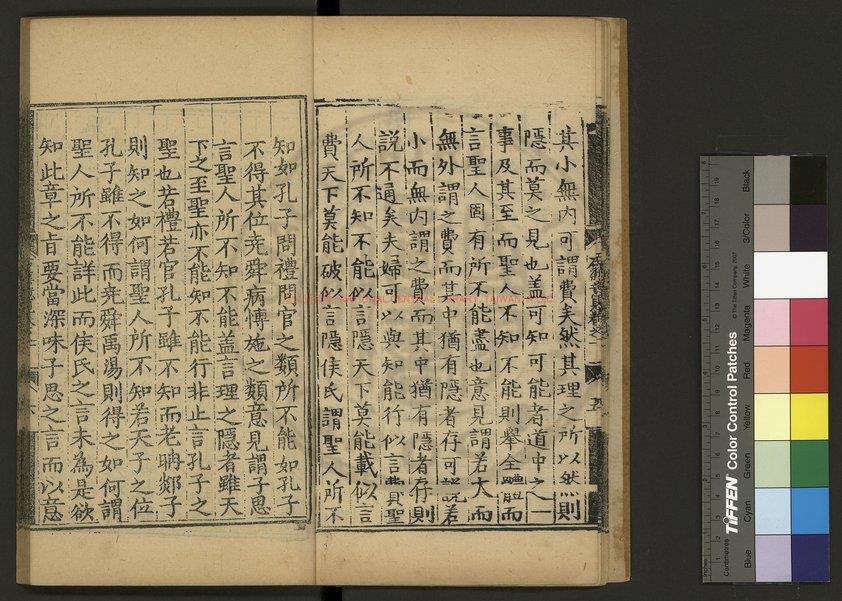 其小無內可謂費矣然其理之所以然則
隱而莫之見也蓋可知可能者道中之一
事及其至而聖人不知不能則舉全體而
言聖人固有所不能盡也意見謂若大而
無外謂之費而其中猶有隱者存可説若
小而無內謂之費而其中猶有隱者存則
説不通矣夫婦可以與知能行似言費聖
人所不知不能似言隱天下莫能載似言
費天下莫能破似言隱侯氏謂聖人所不
知如孔子問禮問官之類所不能如孔子
不得其位堯舜病博施之類意見謂子思
言聖人所不知不能蓋言理之隱者雖天
下之至聖亦不能知不能行非止言孔子之
聖也若禮若官孔子雖不知而老聃郯子
則知之如何謂聖人所不知若天子之位
孔子雖不得而堯舜禹湯則得之如何謂
聖人所不能詳此而侯氏之言未為是欲
知此章之旨要當深味子思之言而以意
TIFFEN Color Control Patches
© The Tiffen Company, 2007
Centimetres
Inches
Blue
Cyan
Green
Yellow
Red
Magenta
White
3/Color
Black